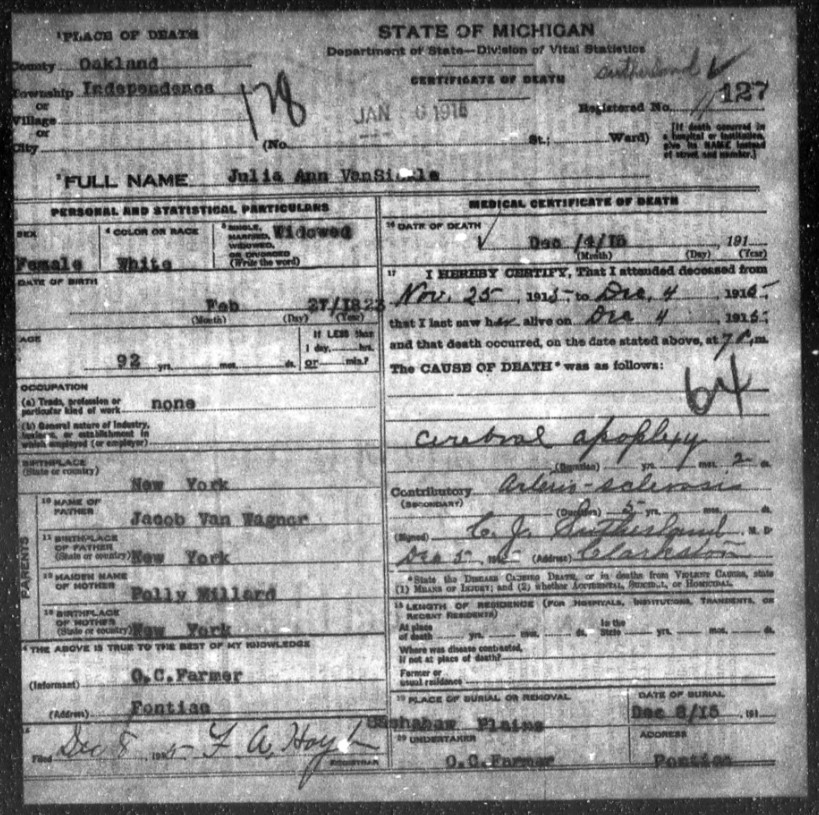 ¹PLACE OF DEATH
STATE OF MICHIGAN
Department of State—Division of Vital Statistics
County Oakland
Township Independence
or
Village
or
City
178
CERTIFICATE OF DEATH
JAN 6 1916
Sutherland ✓
Registered No. 127
(No. St.; Ward)
[If death occurred in a hospital or institution, give its NAME instead of street and number.]
²FULL NAME Julia Ann VanSickle
PERSONAL AND STATISTICAL PARTICULARS
SEX
Female
⁴ COLOR OR RACE
White
⁵ SINGLE, MARRIED, WIDOWED, OR DIVORCED (Write the word)
Widowed
DATE OF BIRTH
Feb 27/1823
(Month) (Day) (Year)
AGE
92 yrs. mos. ds.
If LESS than 1 day, hrs. or min.?
OCCUPATION
(a) Trade, profession or particular kind of work none
(b) General nature of industry, business, or establishment in which employed (or employer)
BIRTHPLACE
(State or country) New York
PARENTS
¹⁰ NAME OF FATHER Jacob Van Wagner
¹¹ BIRTHPLACE OF FATHER (State or country) New York
¹² MAIDEN NAME OF MOTHER Polly Millard
¹³ BIRTHPLACE OF MOTHER (State or country) New York
THE ABOVE IS TRUE TO THE BEST OF MY KNOWLEDGE
(Informant) O.C.Farmer
(Address) Pontiac
Filed Dec 8, 1915 F A Hoyt
REGISTRAR
MEDICAL CERTIFICATE OF DEATH
¹⁶ DATE OF DEATH
Dec /4/15 , 191
(Month) (Day) (Year)
¹⁷ I HEREBY CERTIFY, That I attended deceased from
Nov. 25, 1915 to Dec. 4 1915
that I last saw her alive on Dec 4 1915
and that death occurred, on the date stated above, at 7 P.m.
The CAUSE OF DEATH* was as follows:
64
Cerebral apoplexy
(Duration) yrs. mos. 2 ds.
Contributory Arterio-sclerosis
(SECONDARY)
(Duration) 5 yrs. mos. ds.
(Signed) C. J. Sutherland M. D
Dec 5, 1915 (Address) Clarkston
*State the DISEASE CAUSING DEATH, or in deaths from VIOLENT CAUSES, state (1) MEANS OF INJURY; and (2) whether ACCIDENTAL, SUICIDAL, or HOMICIDAL.
¹⁸ LENGTH OF RESIDENCE (FOR HOSPITALS, INSTITUTIONS, TRANSIENTS, OR RECENT RESIDENTS)
At place of death yrs. mos. ds. In the State yrs. mos. ds.
Where was disease contracted, if not at place of death?
Former or usual residence
¹⁹ PLACE OF BURIAL OR REMOVAL
Sashabaw Plains
DATE OF BURIAL
Dec 8/15 191
²⁰ UNDERTAKER
O.C.Farmer
ADDRESS
Pontiac